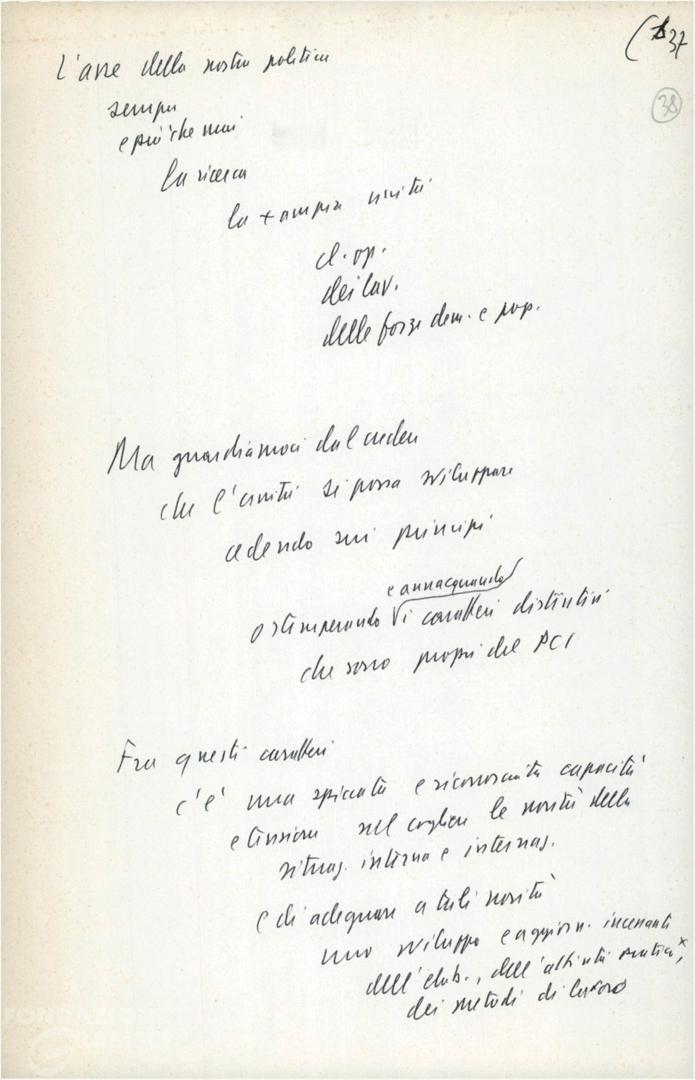 (37
38
L'asse della nostra politica
sempre
e più che mai
la ricerca
la + ampia unità
cl. op.
dei lav.
delle forze dem. e pop.
Ma guardiamoci dal creder
che l'unità si possa sviluppare
cedendo sui principi
e annacquando
o stemperando i caratteri distintivi
che sono propri del PCI
Fra questi caratteri
c'è una spiccata e riconosciuta capacità
e tensione nel cogliere le novità della
situaz. interna e internaz.
e di adeguare a tali novità
uno sviluppo e aggiorn. incessanti
dell'elab., dell'attività pratica,
dei metodi di lavoro